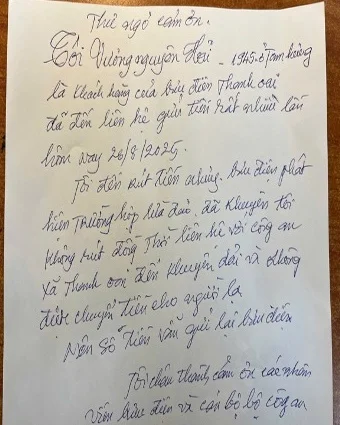 Thư ngỏ cảm ơn.
Tôi Vương nguyên Hơi - 1945 ở Tam hưng
là khách hàng của bưu điện Thanh oai
đã đến liên hệ gửi tiền rất nhiều lần
hôm nay 26/8/2025.
Tôi đến rút tiền nhưng bưu điện phát
hiện trường hợp lừa đảo. đã khuyên tôi
không rút đồng thời liên hệ với công an
xã Thanh oai đến khuyên giải và không
được chuyển tiền cho người lạ
Nên số tiền vẫn gửi lại bưu điện
Tôi chân thành cảm ơn các nhân
viên bưu điện và cán bộ công an